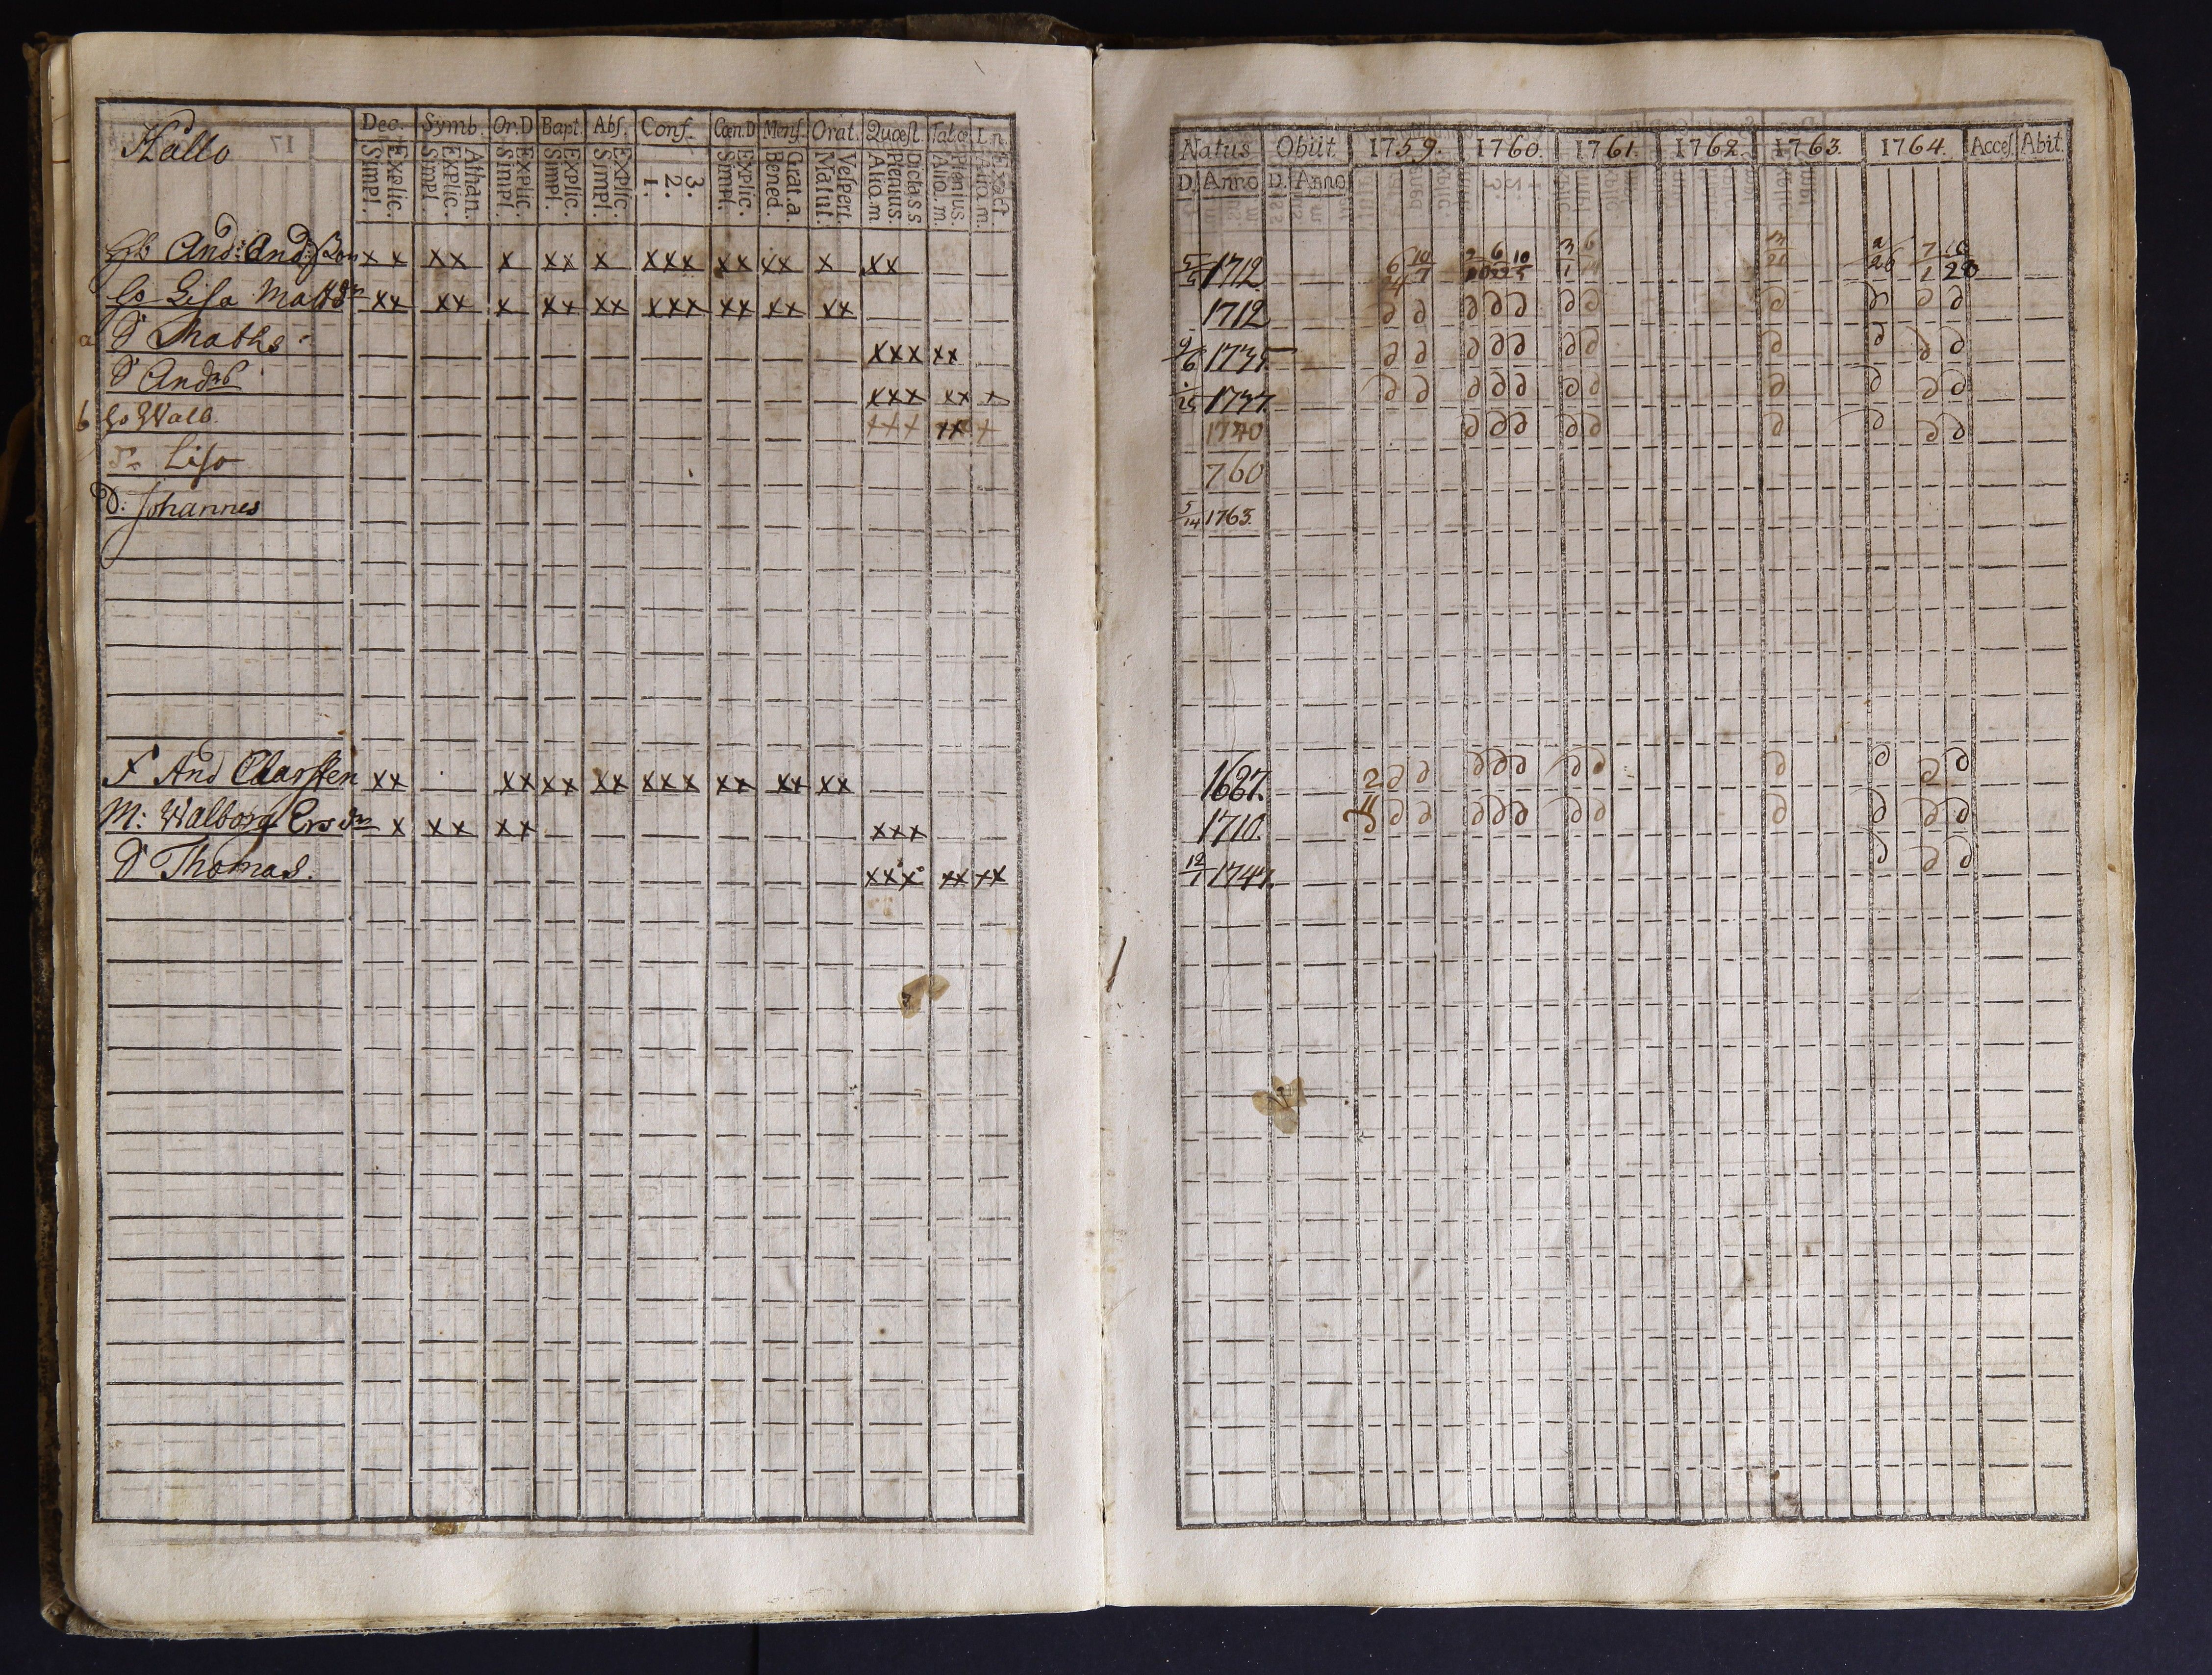 Hallo
Dec. Symb. Or.D Bapt. Abſ. Conf. Cœn.D Menſ. Orat. Quæſt. Tabœ L.n.
Simpl. Explic. Simpl. Explic. Athan. Simpl. Explic. Simpl. Explic. Simpl. Explic. 1. 2. 3. Simpl. Explic. Bened. Grat.a. Matut. Veſpert. Alio.m. Plenius. Dictass Alio.m. Plenius. Alio.m. Exact
And: And:ſson x x xx x xx x xxx xx xx x xx
Liſa Matts dr xx xx x xx xx xxx xx xx xx
a D Maths xxx xx
D And xxx xx x
b Walb. xxx xx x
Liſa
D: Johannes
F And Clarſſen xx xx xx xx xxx xx xx xx
M: Walborg Ers dr x xx xx xxx
D Thomas. xxx xx xx
Natus Obiit 1759. 1760. 1761. 1762. 1763. 1764. Acceſ. Abit.
D. Anno D. Anno
5/5 1712 6/4 10/7 6/22 10/5 3/1 7/1 10/28
1712 ∂ ∂ ∂ ∂ ∂ ∂ ∂ ∂ ∂ ∂ ∂
9/6 1735 ∂ ∂ ∂ ∂ ∂ ∂ ∂ ∂ ∂ ∂ ∂
1737 ∂ ∂ ∂ ∂ ∂ ∂ ∂ ∂ ∂ ∂ ∂
1740 ∂ ∂ ∂ ∂ ∂ ∂ ∂ ∂ ∂
760
5/14 1763.
1687. ∂ ∂ ∂ ∂ ∂ ∂ ∂ ∂ ∂ ∂ ∂
1710. ∂ ∂ ∂ ∂ ∂ ∂ ∂ ∂ ∂ ∂ ∂
12/1 1747. ∂ ∂ ∂